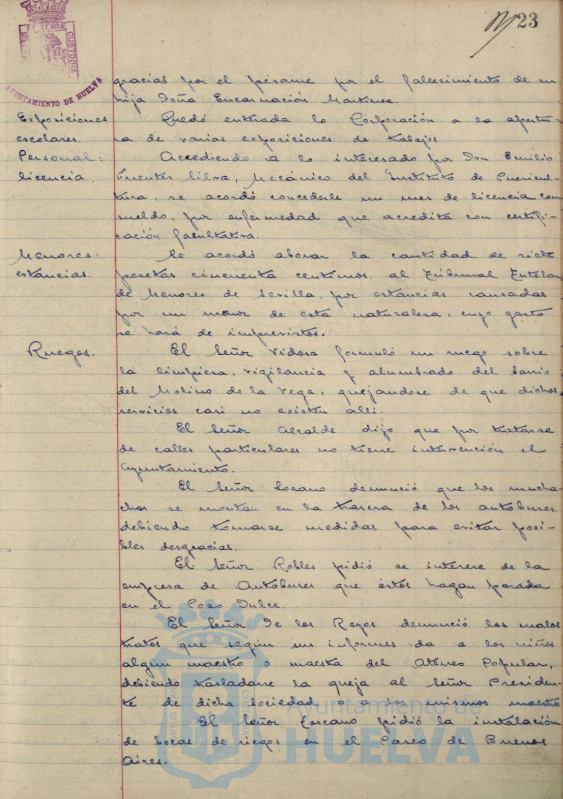 23
AYUNTAMIENTO DE HUELVA
CUSTODIA
gracias por el pésame por el fallecimiento de su
hija Doña Encarnación Martínez.
Exposiciones escolares.
Quedó enterada la Corporación a la apertu-
ra de varias exposiciones de trabajos
Personal: licencia.
Accediendo a lo interesado por Don Emilio
Fuentes Silva, Mecánico del Instituto de Puericul-
tura, se acordó concederle un mes de licencia con
sueldo, por enfermedad que acredita con certifi-
cación facultativa.
Menores: estancias.
Se acordó abonar la cantidad de siete
pesetas cincuenta centimos, al Tribunal Tutelar
de Menores de Sevilla, por estancias causadas
por un menor de esta naturaleza, cuyo gasto
se hará de imprevistos.
Ruegos.
El Señor Vidosa formuló un ruego sobre
la limpieza, vigilancia y alumbrado del barrio
del Molino de la Vega, quejandose de que dichos
servicios casi no existen allí.
El Señor Alcalde dijo que por tratarse
de calles particulares no tiene intervención el
Ayuntamiento.
El Señor denunció que los mucha-
chos se montan en la trasera de los autobuses,
debiendo tomarse medidas para evitar posi-
bles desgracias.
El Señor Robles pidió se interese de la
empresa de Autobuses que éstos hagan parada
en el Pozo Dulce.
El Señor De los Reyes denunció los malos
tratos que según sus informes da a los niños
algun maestro o maestra del Ateneo Popular,
debiendo trasladarse la queja al Señor Presiden-
te de dicha sociedad o a los mismos maestros
El Señor Toscano pidió la instalación
de bocas de riegos en el Paseo de Buenos
Aires.
Ayuntamiento de
HUELVA